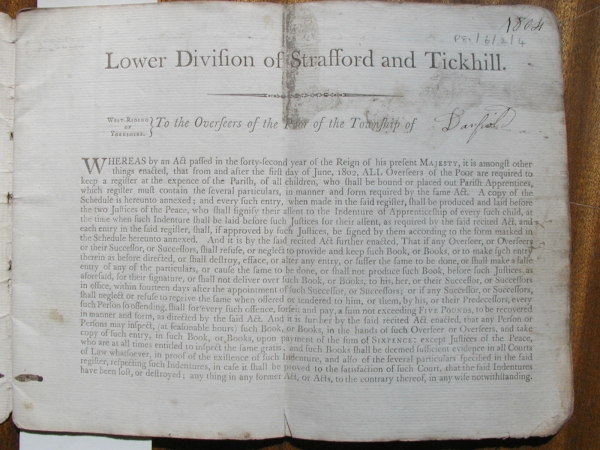 1804
PC1/6/2/4
Lower Diviſion of Strafford and Tickhill.
WEST-RIDING
OF
YORKSHIRE.
} To the Overſeers of the Poor of the Townſhip of
WHEREAS by an Act paſſed in the forty-ſecond year of the Reign of his preſent MAJESTY, it is amongſt other
things enacted, that from and after the firſt day of June, 1802, ALL Overſeers of the Poor are required to
keep a regiſter at the expence of the Pariſh, of all children, who ſhall be bound or placed out Pariſh Apprentices,
which regiſter muſt contain the ſeveral particulars, in manner and form required by the ſame Act. A copy of the
Schedule is hereunto annexed; and every ſuch entry, when made in the ſaid regiſter, ſhall be produced and laid before
the two Juſtices of the Peace, who ſhall ſignify their aſſent to the Indenture of Apprenticeſhip of every ſuch child, at
the time when ſuch Indenture ſhall be laid before ſuch Juſtices for their aſſent, as required by the ſaid recited Act, and
each entry in the ſaid regiſter, ſhall, if approved by ſuch Juſtices, be ſigned by them according to the form marked in
the Schedule hereunto annexed. And it is by the ſaid recited Act further enacted, That if any Overſeer, or Overſeers
or their Succeſſor, or Succeſſors, ſhall refuſe, or neglect to provide and keep ſuch Book, or Books, or to make ſuch entry
therein as before directed, or ſhall deſtroy, efface, or alter any entry, or ſuffer the ſame to be done, or ſhall make a falſe
entry of any of the particulars, or cauſe the ſame to be done, or ſhall not produce ſuch Book, before ſuch Juſtices as
aforeſaid, for their ſignature, or ſhall not deliver over ſuch Book, or Books, to his, her, or their Succeſſor, or Succeſſors
in office, within fourteen days after the appointment of ſuch Succeſſor, or Succeſſors; or if any Succeſſor, or Succeſſors,
ſhall neglect or refuſe to receive the ſame when offered or tendered to him, or them, by his, or their Predeceſſor, every
ſuch Perſon ſo offending, ſhall for every ſuch offence, forfeit and pay, a ſum not exceeding FIVE POUNDS, to be recovered
in manner and form, as directed by the ſaid Act. And it is further by the ſaid recited Act enacted, that any Perſon or
Perſons may inſpect, (at ſeaſonable hours) ſuch Book, or Books, in the hands of ſuch Overſeer or Overſeers, and take
copy of ſuch entry, in ſuch Book, or Books, upon payment of the ſum of SIXPENCE: except Juſtices of the Peace,
who are at all times entitled to inſpect the ſame gratis, and ſuch Books ſhall be deemed ſufficient evidence in all Courts
of Law whatſoever, in proof of the exiſtence of ſuch Indenture, and alſo of the ſeveral particulars ſpecified in the ſaid
regiſter, reſpecting ſuch Indentures, in caſe it ſhall be proved to the ſatisfaction of ſuch Court, that the ſaid Indentures
have been loſt, or deſtroyed; any thing in any former Act, or Acts, to the contrary thereof, in any wiſe notwithſtanding.